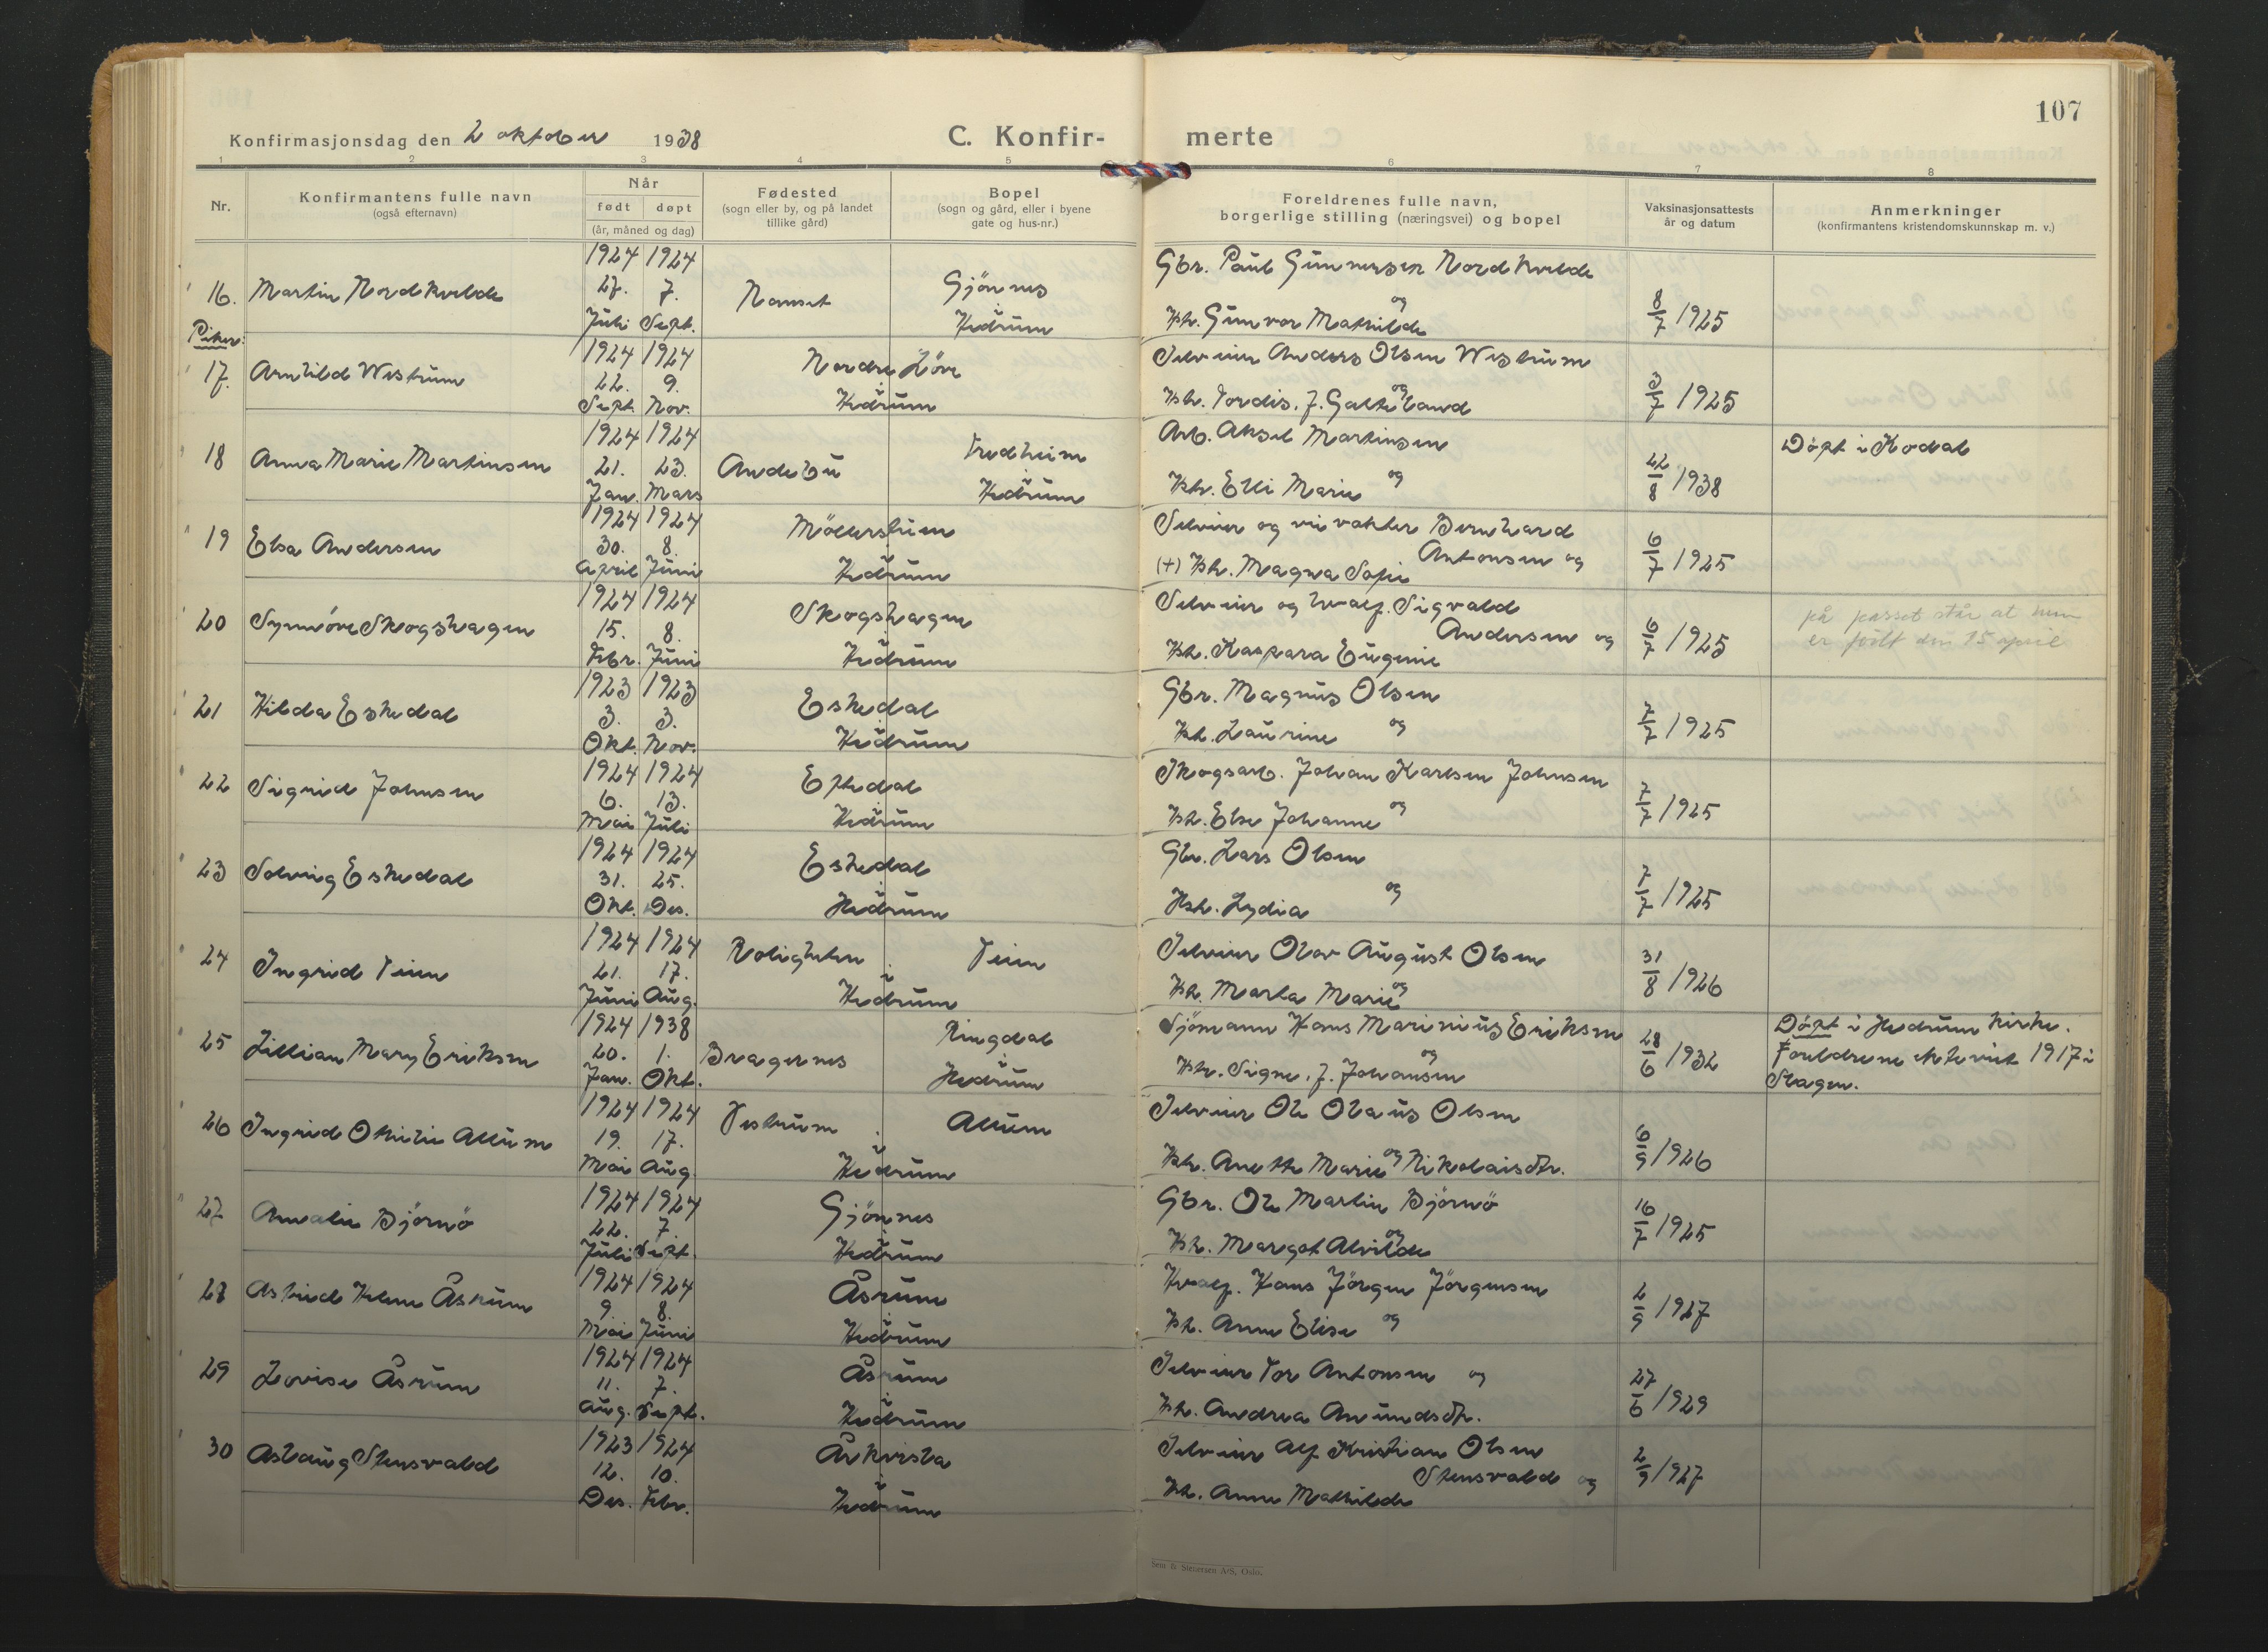 107
Konfirmasjonsdag den 2 oktober 1938
C. Konfirmerte
1 2 3 4 5 6 7 8
Nr.
Konfirmantens fulle navn
(også efternavn)
Når
født døpt
(år, måned og dag)
Fødested
(sogn eller by, og på landet
tillike gård)
Bopel
(sogn og gård, eller i byene
gate og hus-nr.)
Foreldrenes fulle navn,
borgerlige stilling (næringsvei) og bopel
Vaksinasjonsattests
år og datum
Anmerkninger
(konfirmantens kristendomskunnskap m. v.)
1924 1924 Gbr. Paul Gunnersen Nordkvelde
16. Martin Nordkvelde 27. 7. Namset Gjönnes og 8/7 1925
Juli Sept. Hedrum Hh. Gunvor Mathilde
Piker:
1924 1924 Nordre Löve Selveier Anders Olsen Westrum
17. Arnhild Westrum 22. 9. og 3/7 1925
Sept. Nov. i Hedrum Hh. Tordis f. Galteland
1924 1924 Arb. Aksel Martinsen Döpt i Kodal
18 Anna Marie Martinsen 21. 23. Andebu Fredheim og 22/8 1938
Jan. Mars i Hedrum Hh. Elli Marie
1924 1924 Möllerstuen Selveier og veivokter Bernhard
19 Elsa Andersen 30. 8. Antonsen og 6/7 1925
April Juni i Hedrum (+) Hh. Magna Sofie
1924 1924 Skogshagen Selveier og hvalf. Sigvald
20 Synnöve Skogshagen 15. 8. Andersen og 6/7 1925 på passet står at hun
Febr. Juni i Hedrum Hh. Kaspara Eugenie er født den 15 april
1923 1923 Eskedal Gbr. Magnus Olsen
21 Hilda Eskedal 3. 3. og 7/7 1925
Okt. Nov. i Hedrum Hh. Laurine
1924 1924 Eskedal Skogsarb. Johan Karlsen Johnsen
22 Sigrid Johnsen 6. 13. og 7/7 1925
Mai Juli i Hedrum Hh. Else Johanne
1924 1924 Eskedal Gbr. Lars Olsen
23 Solveig Eskedal 31. 25. og 7/7 1925
Okt. Des. i Hedrum Hh. Lydia
1924 1924 Roligheten Veien Selveier Olav August Olsen
24 Ingrid Veien 21. 17. og 31/8 1926
Juni Aug. i Hedrum Hh. Marta Marie
1924 1938 Ringdal Sjömann Hans Marinius Eriksen Döpt i Hedrum kirke.
25 Lillian Mary Eriksen 20. 1. Bragernes og 28/6 1932 Foreldrene ekteviet 1917 i
Jan. Okt. i Hedrum Hh. Signe f. Johansen Slagen.
1924 1924 Vestrum Allum Selveier Ole Olaus Olsen
26 Ingrid Otilie Allum 19. 17. og 6/9 1926
Mai Aug. i Hedrum Hh. Anette Marie Nikolaisdtr.
1924 1924 Gjönnes Gbr. Ole Martin Björnö
27 Amalie Björnö 22. 7. og 16/7 1925
Juli Sept. i Hedrum Hh. Margot Alvilde
1924 1924 Åsrum Hvalf. Hans Jörgen Jörgensen
28 Astrid Helene Åsrum 9. 8. og 2/9 1927
Mai Juni i Hedrum Hh. Anne Elise
1924 1924 Åsrum Selveier Tor Antonsen og
29 Lovise Åsrum 11. 7. 27/6 1929
Aug. Sept. i Hedrum Hh. Andrea Anundsdtr.
1923 1924 Årkvisla Selveier Alf Kristian Olsen
30 Aslaug Stensvald 12. 10. Stensvald og 2/9 1927
Des. Febr. i Hedrum Hh. Anne Mathilde
Sem & Stenersen A/S, Oslo.